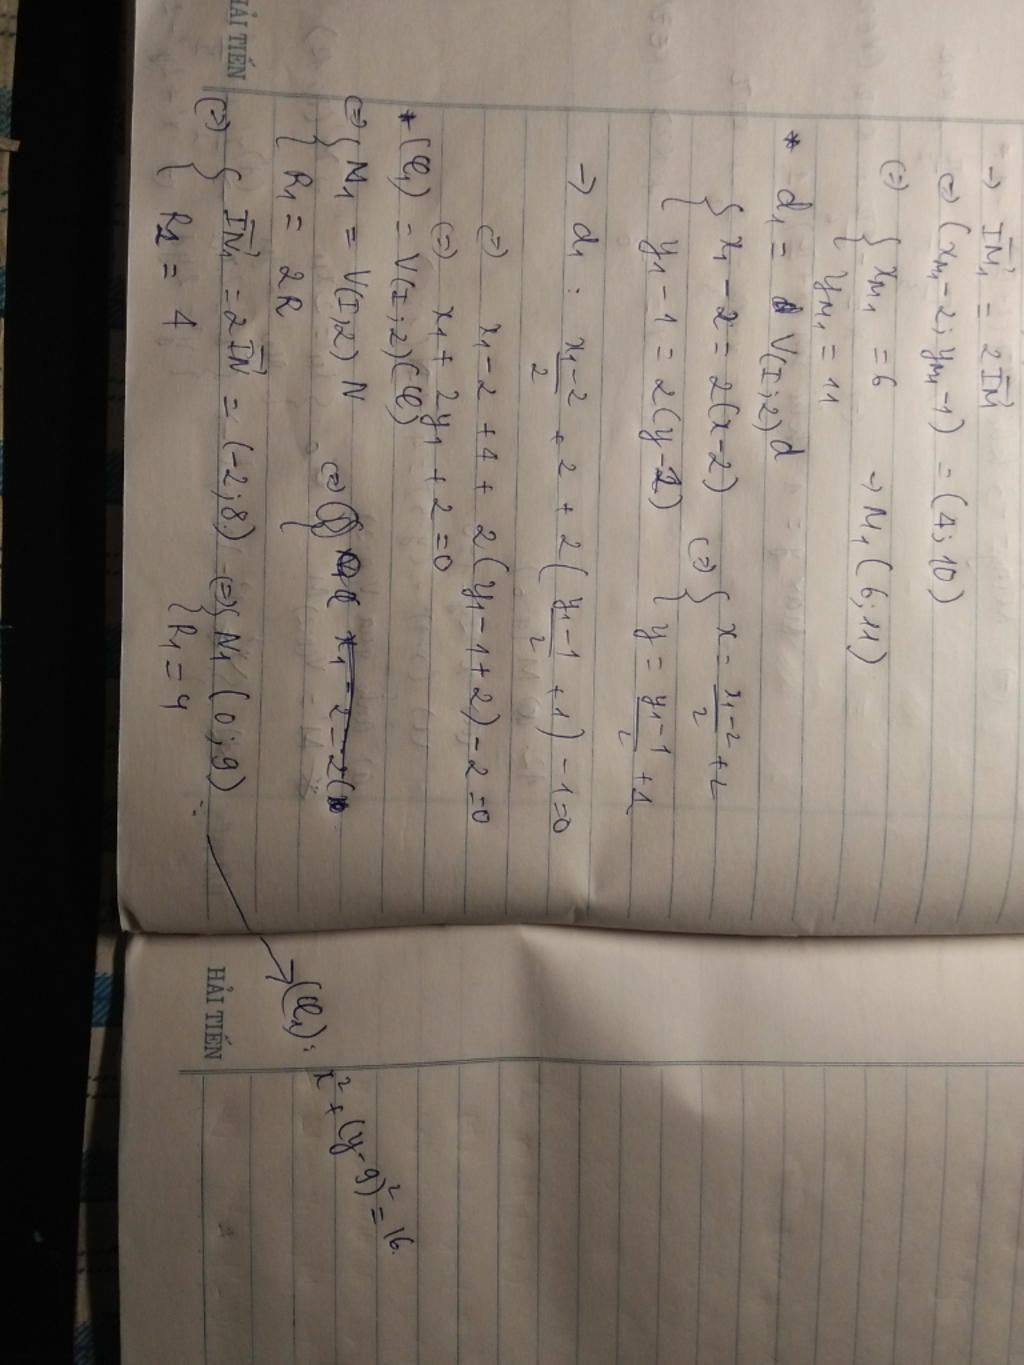 → IM₁ = 2IM
(=) (xM₁ - 2; yM₁ - 1) = (4; 10)
(=) { xM₁ = 6
{ yM₁ = 11 → M₁ (6; 11)
* d₁ = V(I; 2) d
{ x₁ - 2 = 2(x - 2)
{ y₁ - 1 = 2(y - 1)
(=) { x = x₁-2/2 + 2
{ y = y₁-1/2 + 1
→ d₁ : x₁-2/2 + 2 + 2(y₁-1/2 + 1) - 1 = 0
(=) x₁ - 2 + 4 + 2(y₁ - 1 + 2) - 2 = 0
(=) x₁ + 2y₁ + 2 = 0
* (C₁) = V(I; 2)(C)
(=) { N₁ = V(I; 2) N
{ R₁ = 2R
(=) {
(=) { IN₁ = 2IN = (-2; 8)
{ R₁ = 4
(=) { N₁ (0; 9)
{ R₁ = 4
→ (C₁): x² + (y - 9)² = 16.
HẢI TIẾN
HẢI TIẾN